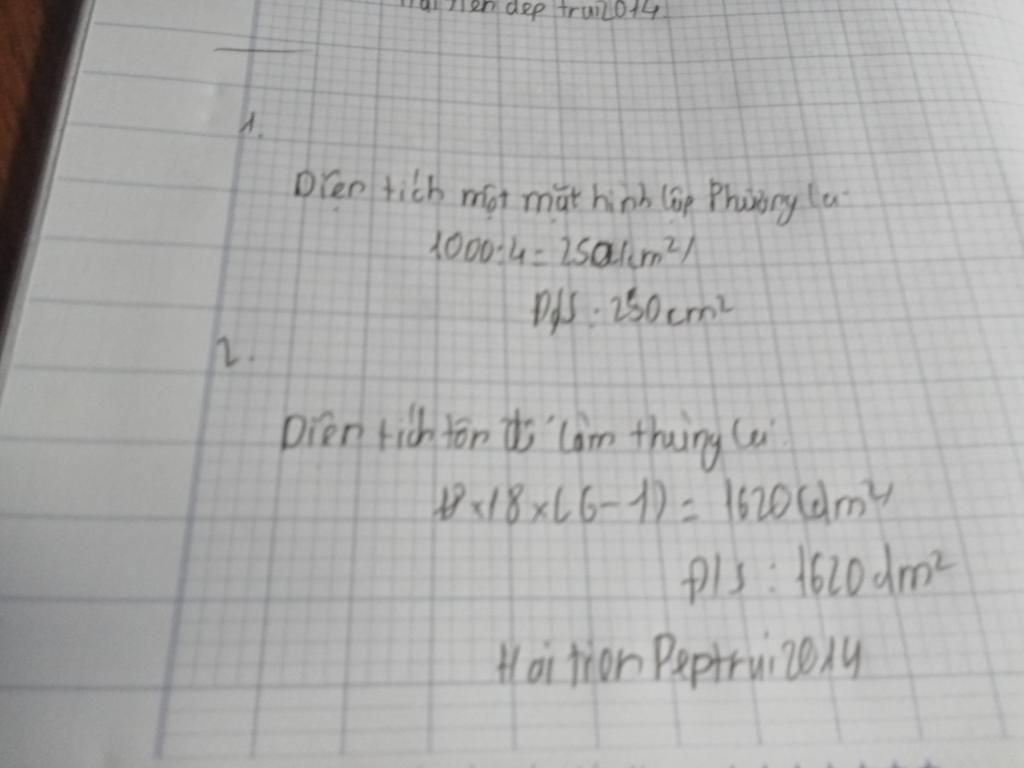 Hai tien dep trui2014
1.
Diện tích một mặt hình lập Phương là
1000:4=250(cm²)
Đ/S: 250cm²
2.
Diện tích tôn để làm thùng là
18×18×(6-1)=1620(dm²)
Đ/S: 1620dm²
Hai tien Peptrui2014